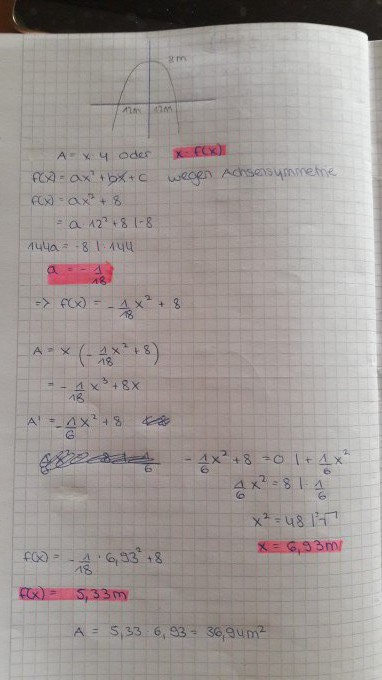 8m
12m 12m
A = x · y oder x · f(x)
f(x) = ax² + bx + c wegen Achsensymmetrie
f(x) = ax² + 8
= a · 12² + 8 | -8
144a = -8 | : 144
a = -1/18
=> f(x) = -1/18 x² + 8
A = x (-1/18 x² + 8)
= -1/18 x³ + 8x
A' = -1/6 x² + 8
-1/6 x² + 8 = 0 | + 1/6 x²
1/6 x² = 8 | : 1/6
x² = 48 | √
x = 6,93m
f(x) = -1/18 · 6,93² + 8
f(x) = 5,33m
A = 5,33 · 6,93 = 36,94m²